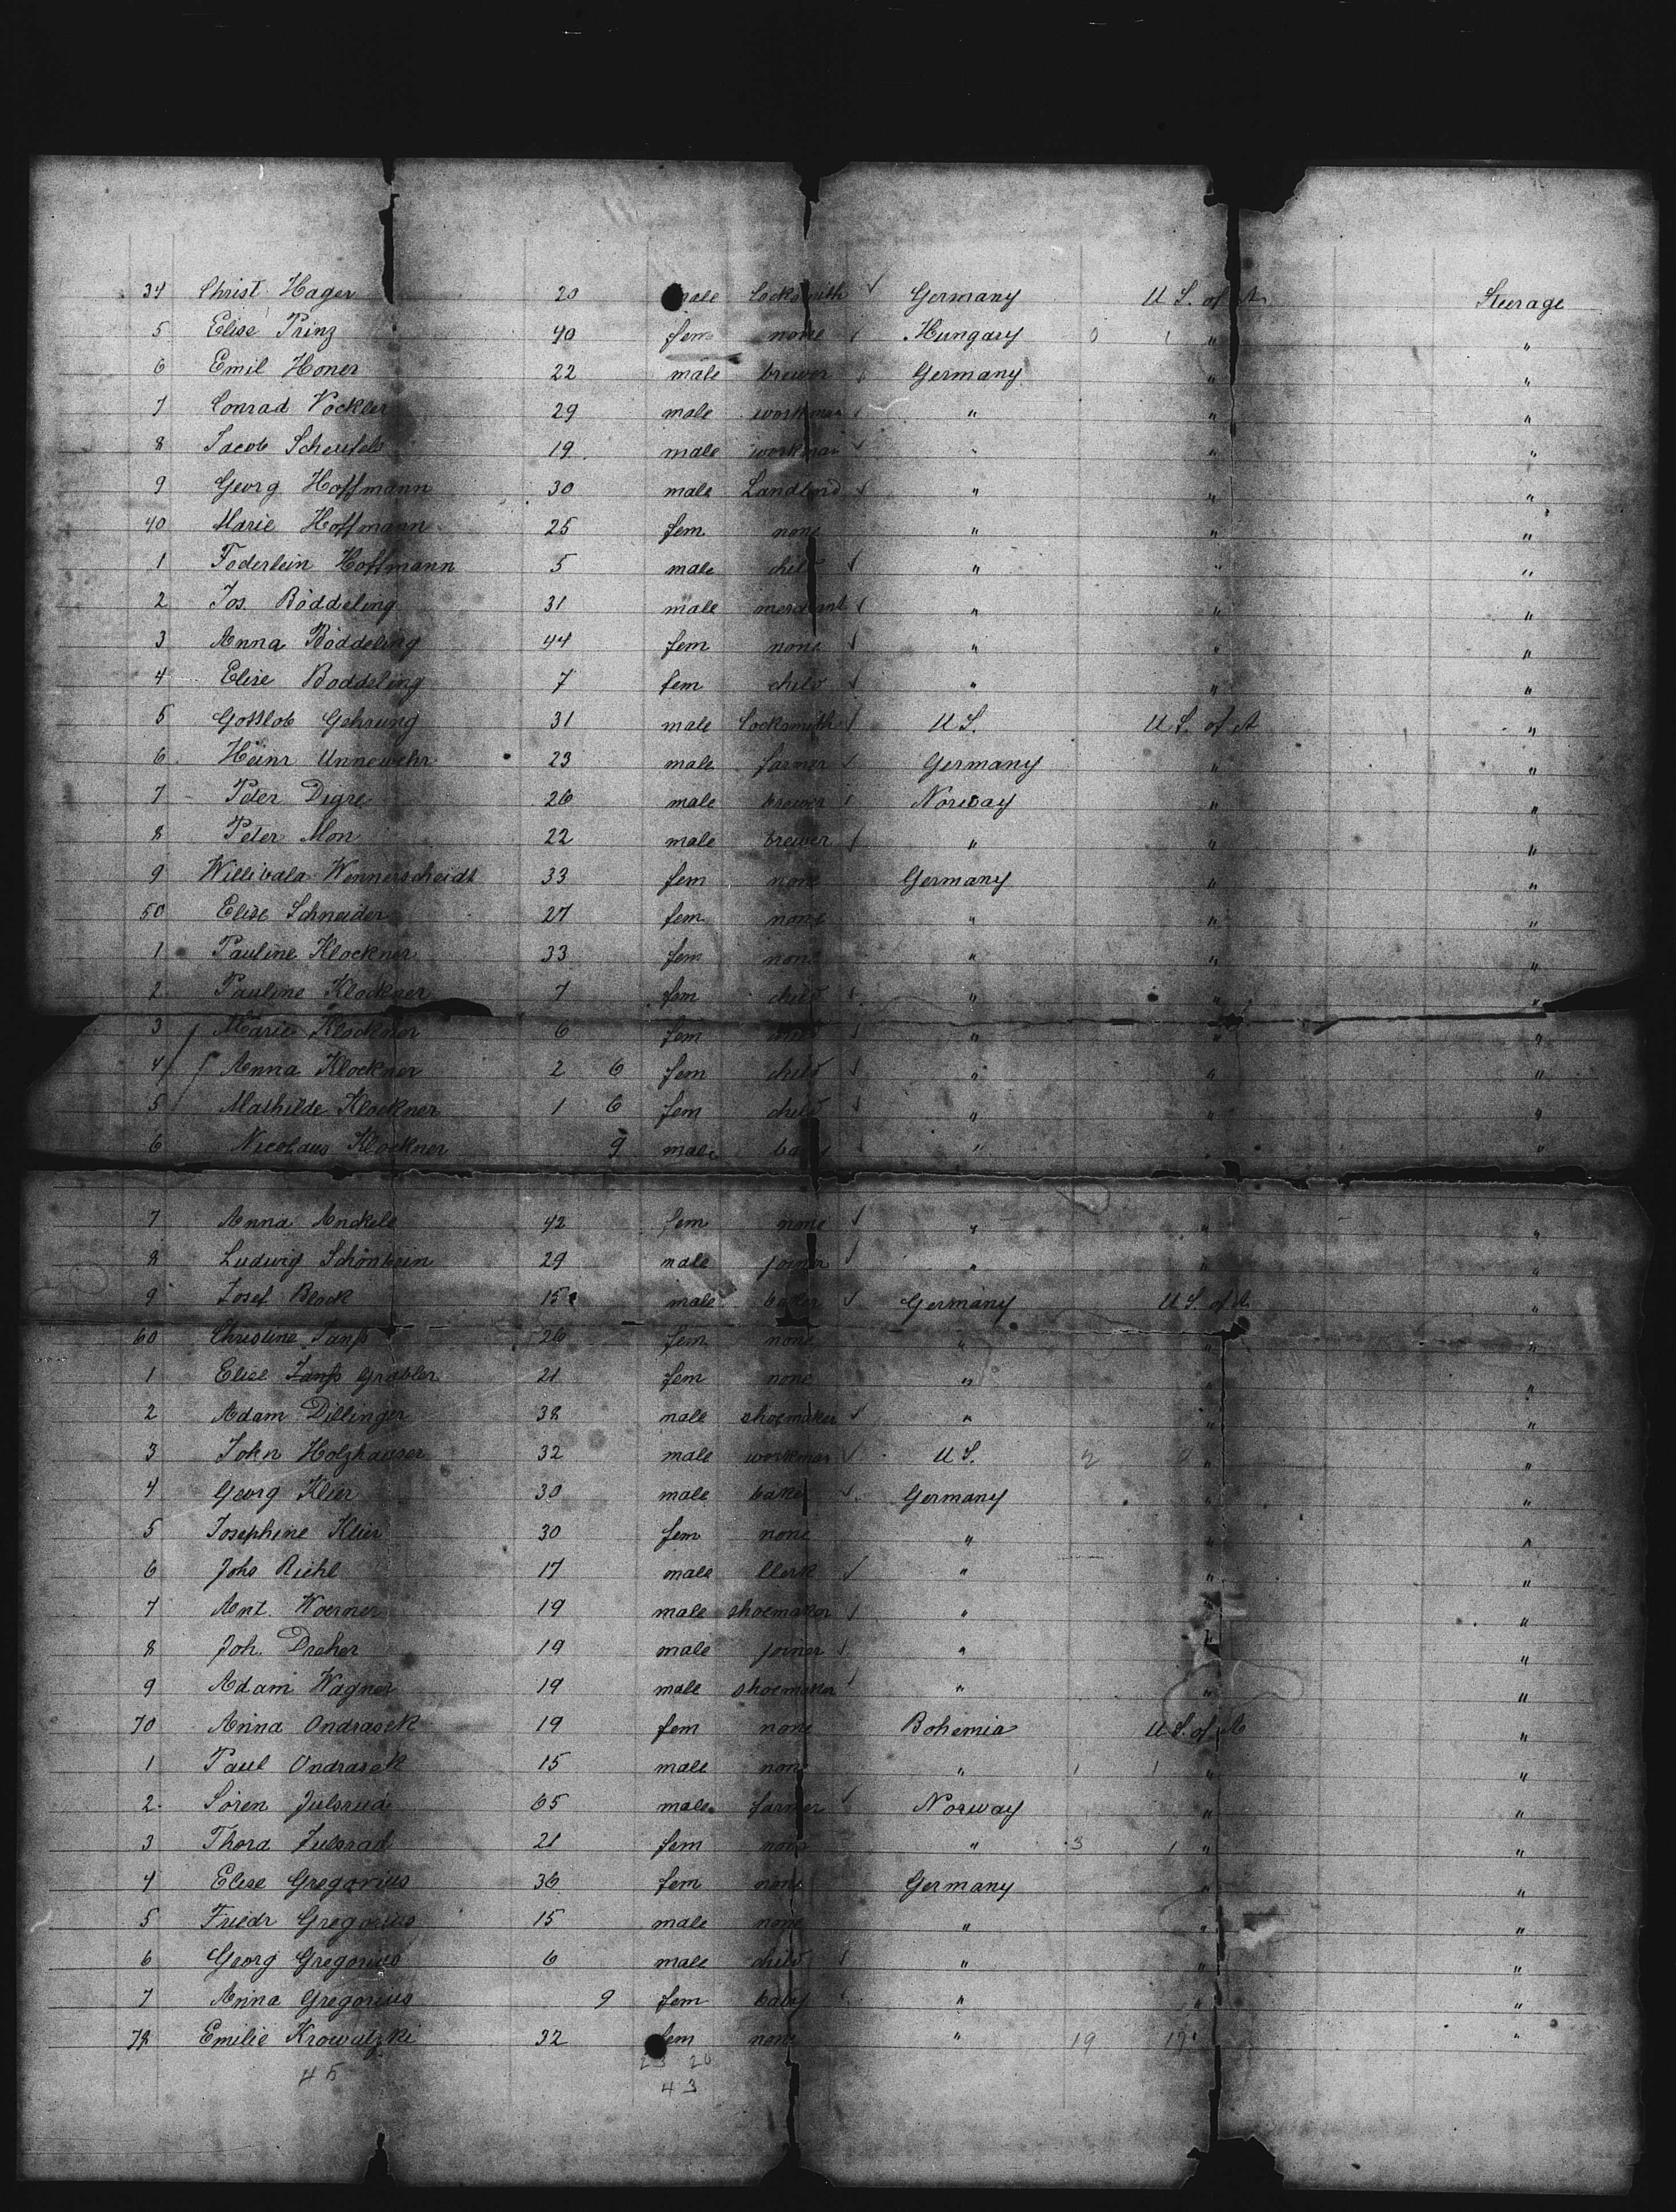 34 Christ Hager 20 male locksmith ✓ Germany U S. of A. Steerage
5 Elise Prinz 40 fem none ✓ Hungary 0 1 " "
6 Emil Honer 22 male brewer ✓ Germany " "
7 Conrad Vockler 29 male workman ✓ " " "
8 Jacob Scheufele 19 male workman ✓ " " "
9 Georg Hoffmann 30 male Landlord ✓ " " "
40 Marie Hoffmann 25 fem none " " "
1 Foderlein Hoffmann 5 male child ✓ " " "
2 Jos. Böddeling 31 male merchant ✓ " " "
3 Anna Böddeling 44 fem none ✓ " " "
4 Elise Boddeling 7 fem child ✓ " " "
5 Gottlob Gehrung 31 male locksmith ✓ U S. U. S. of A "
6 Heinr Unnewehr 23 male farmer ✓ Germany " "
7 Peter Digre 26 male brewer ✓ Norway " "
8 Peter Mon 22 male brewer ✓ " " "
9 Willivala Wennerscheidt 33 fem none Germany " "
50 Elise Schneider 27 fem none " " "
1 Pauline Klockner 33 fem none " " "
2 Pauline Klockner 7 fem child ✓ " " "
3 Marie Klockner 6 fem ✓ " " "
4 Anna Klockner 2 6 fem child ✓ " " "
5 Mathilde Klockner 1 6 fem child ✓ " " "
6 Nicolaus Klockner 9 male baby " " "
7 Anna Anckele 42 fem none ✓ " " "
8 Ludwig Schönbein 29 male joiner ✓ " " "
9 Josef Block 15 male baker ✓ Germany U S. of A "
60 Christine Janß 26 fem none " " "
1 Elise Janß Grabler 21 fem none " " "
2 Adam Dillinger 38 male shoemaker ✓ " " "
3 John Holzhauser 32 male workman ✓ U S. 2 0 " "
4 Georg Klier 30 male baker ✓ Germany " "
5 Josephine Klier 30 fem none " " "
6 Johs Riehl 17 male Clerk ✓ " " "
7 Ant. Woerner 19 male shoemaker ✓ " " "
8 Joh. Dreher 19 male joiner ✓ " " "
9 Adam Wagner 19 male shoemaker ✓ " " "
70 Anna Ondrasek 19 fem none Bohemia U. S. of A "
1 Paul Ondrasek 15 male none " 1 1 " "
2 Sören Julsrud 65 male farmer ✓ Norway " "
3 Thora Julsrad 21 fem none " 3 1 " "
4 Elise Gregorius 36 fem none Germany " "
5 Friedr Gregorius 15 male none " " "
6 Georg Gregorius 6 male child ✓ " " "
7 Anna Gregorius 9 fem baby ✓ " " "
78 Emilie Krowulzki 32 fem none " 19 17 "
23 20
45 43